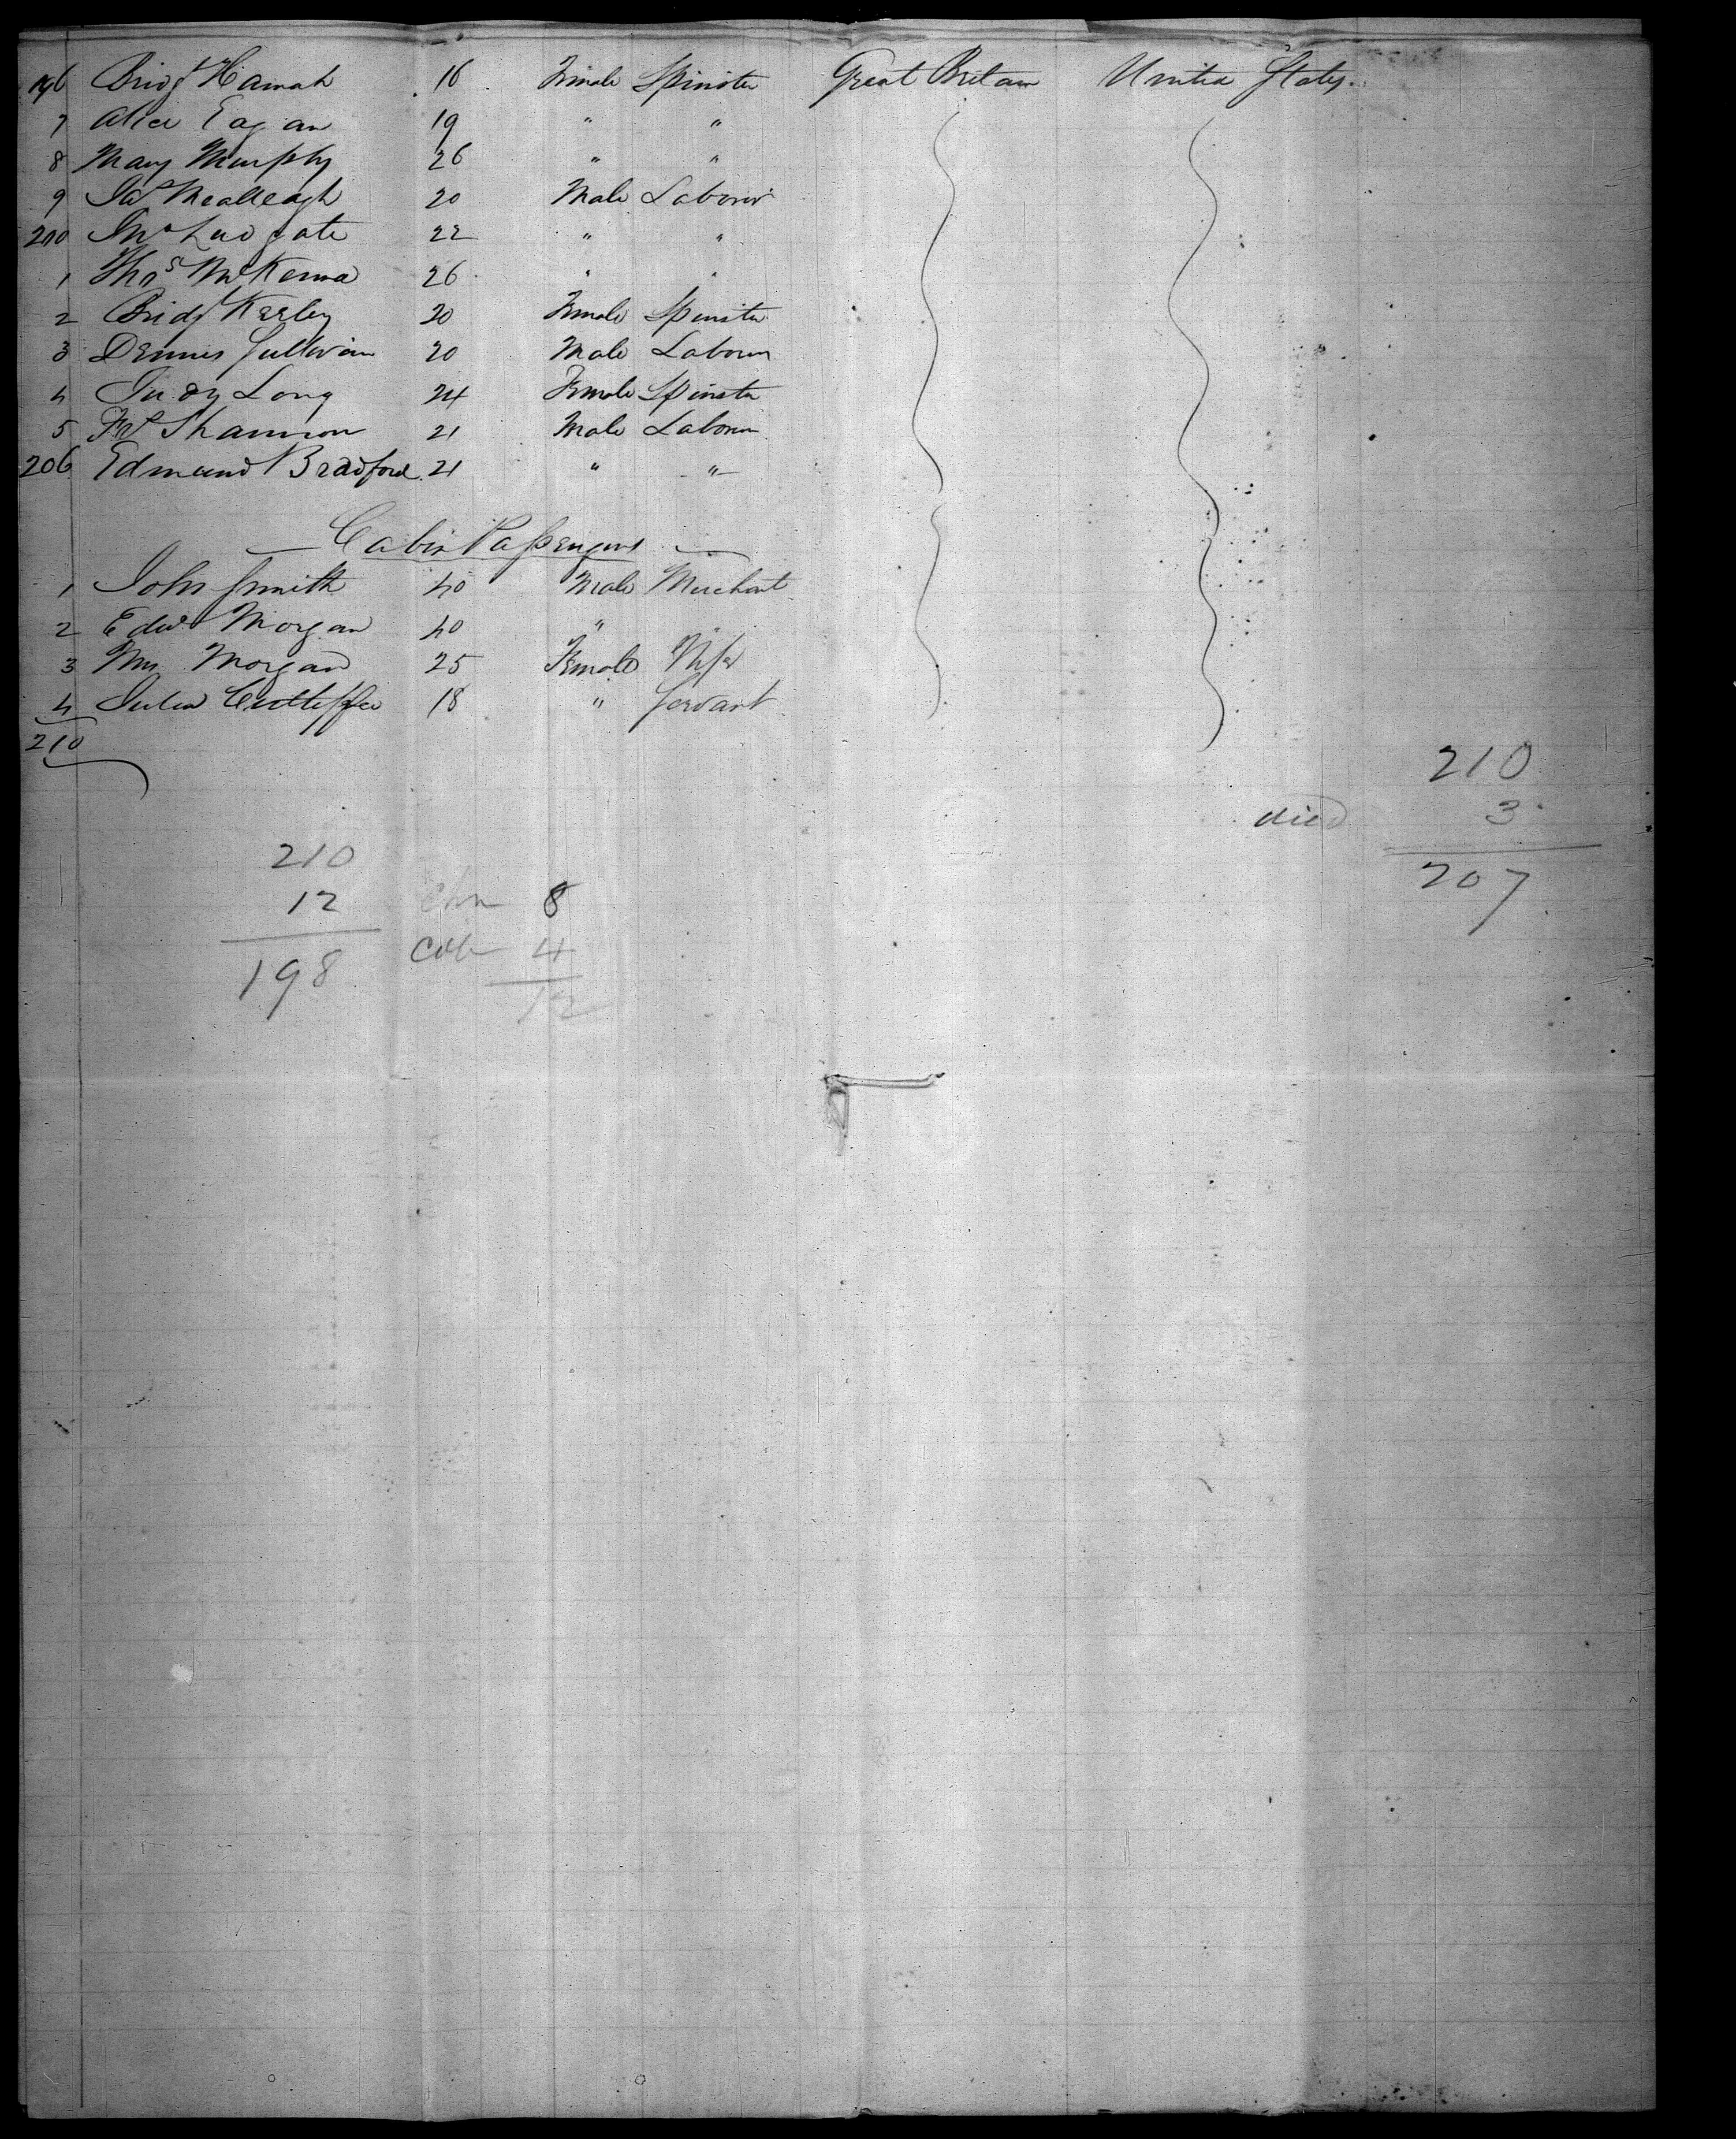 196 Bridgt Hannah 16 Female Spinster Great Britain United States
7 Alice Eagan 19 " "
8 Mary Murphy 26 " "
9 Jas 20 Male Labourer
200 Jno Ludgate 22 " "
1 Thos McKenna 26 " "
2 Bridgt Kerley 20 Female Spinster
3 Dennis Sullivan 20 Male Labourer
4 Judy Long 24 Female Spinster
5 Shannon 21 Male Labourer
206 Edmund Bradford 21 " "
Cabin Passengers
1 John Smith 40 Male Merchant
2 Edwd Morgan 40 " "
3 Mrs Morgan 25 Female Wife
4 Julia 18 " Servant
210
210
died 3
207
210
12 chn 8
198 Cab 4
12